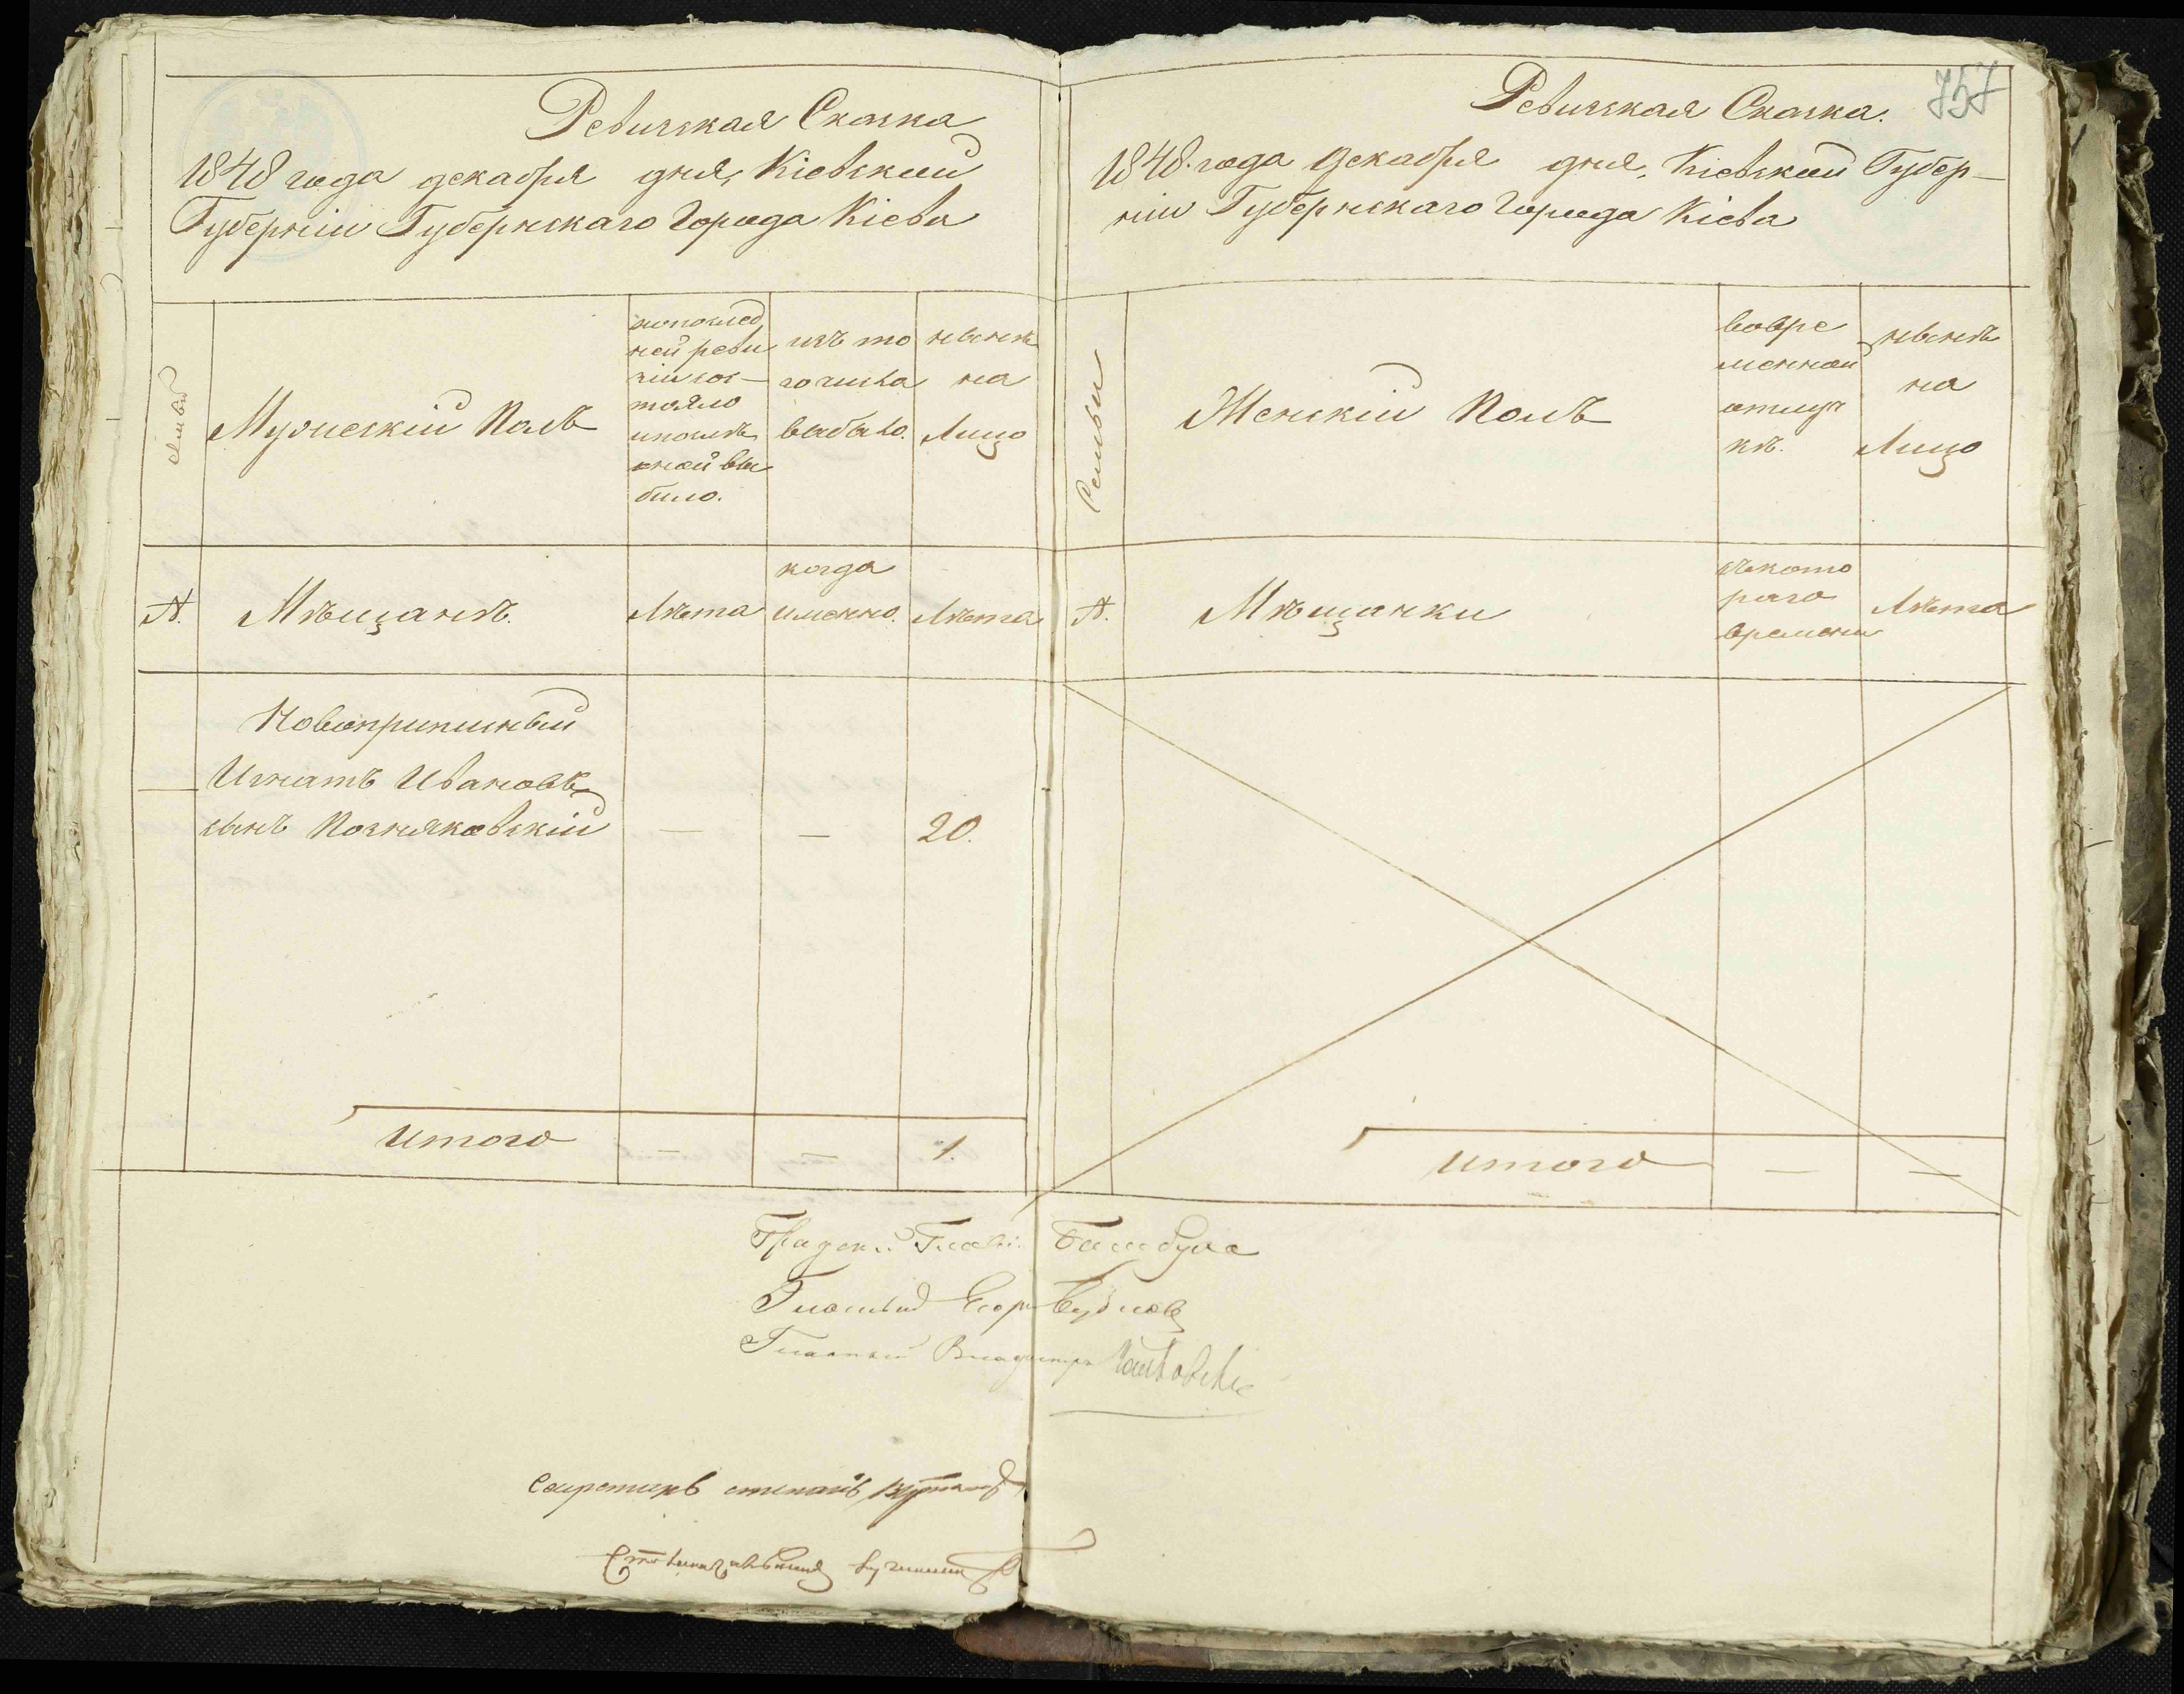 Ревизская Сказка
1848 года декабря дня, Кіевской
Губерніи Губернскаго Города Кіева
Семьи
Мужескій Полъ
попослед
ней реви
зіи сос-
тояло
ипослѣ
оной вы
было.
изъ то
го числа
выбыло.
нынѣ
на
Лицо
№.
Мѣщанъ.
Лѣта
когда
именно.
Лѣта
Новоприписный
Игнатъ Ивановъ
сынъ Позняковскій — — 20.
Итого — — 1.
757
Ревизская Сказка.
1848. года Декабря дня, Кіевской Губер-
ніи Губернскаго Города Кіева
Семьи
Женскій Полъ
вовре
менной
отлуч
кѣ.
нынѣ
на
Лицо
№.
Мѣщанки
съкото
раго
времени
Лѣта
Итого — —
Градск. Глав.
Гласный Егор
Гласный Владимиръ